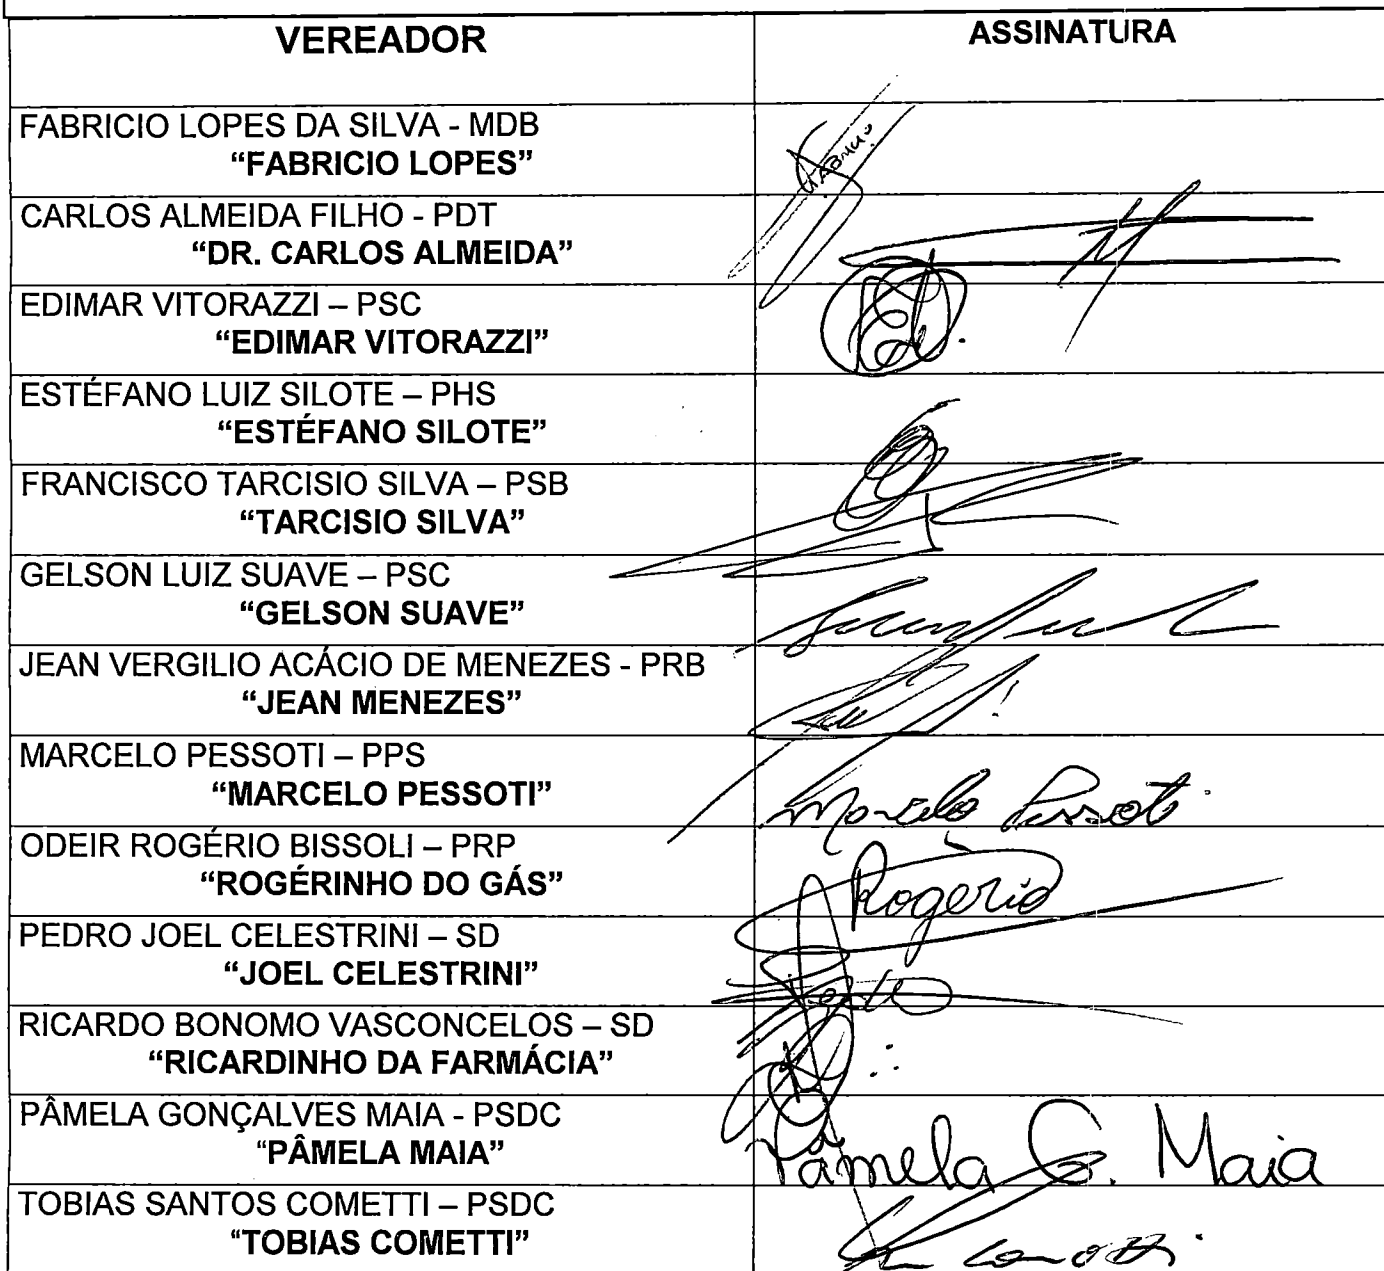 VEREADOR
ASSINATURA
FABRICIO LOPES DA SILVA - MDB
“FABRICIO LOPES”
CARLOS ALMEIDA FILHO - PDT
“DR. CARLOS ALMEIDA”
EDIMAR VITORAZZI – PSC
“EDIMAR VITORAZZI”
ESTÉFANO LUIZ SILOTE – PHS
“ESTÉFANO SILOTE”
FRANCISCO TARCISIO SILVA – PSB
“TARCISIO SILVA”
GELSON LUIZ SUAVE – PSC
“GELSON SUAVE”
JEAN VERGILIO ACÁCIO DE MENEZES - PRB
“JEAN MENEZES”
MARCELO PESSOTI – PPS
“MARCELO PESSOTI”
Marcelo Pessoti
ODEIR ROGÉRIO BISSOLI – PRP
“ROGÉRINHO DO GÁS”
Rogério
PEDRO JOEL CELESTRINI – SD
“JOEL CELESTRINI”
RICARDO BONOMO VASCONCELOS – SD
“RICARDINHO DA FARMÁCIA”
PÂMELA GONÇALVES MAIA - PSDC
“PÂMELA MAIA”
Pâmela G. Maia
TOBIAS SANTOS COMETTI – PSDC
“TOBIAS COMETTI”